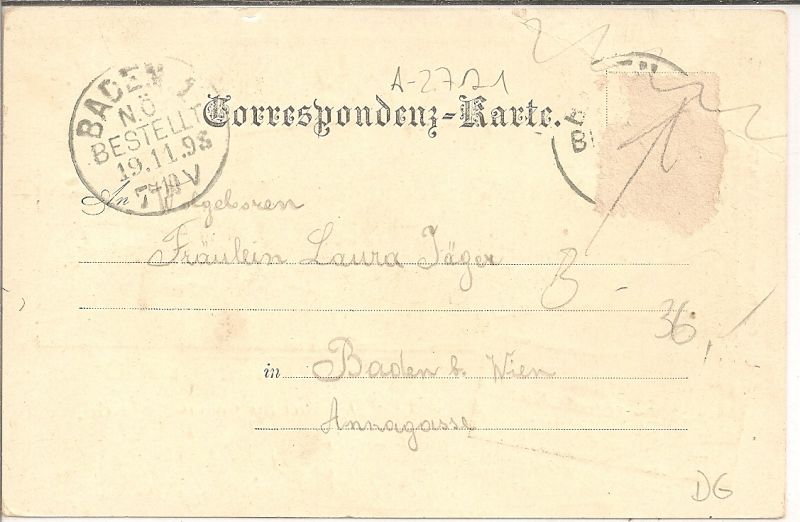 A-27121
Correspondenz-Karte.
BADEN 1
N.Ö
BESTELLT
19.11.98
An Wolgeboren
Fräulein Laura Jäger
36,
in Baden b. Wien
Annagasse
DG